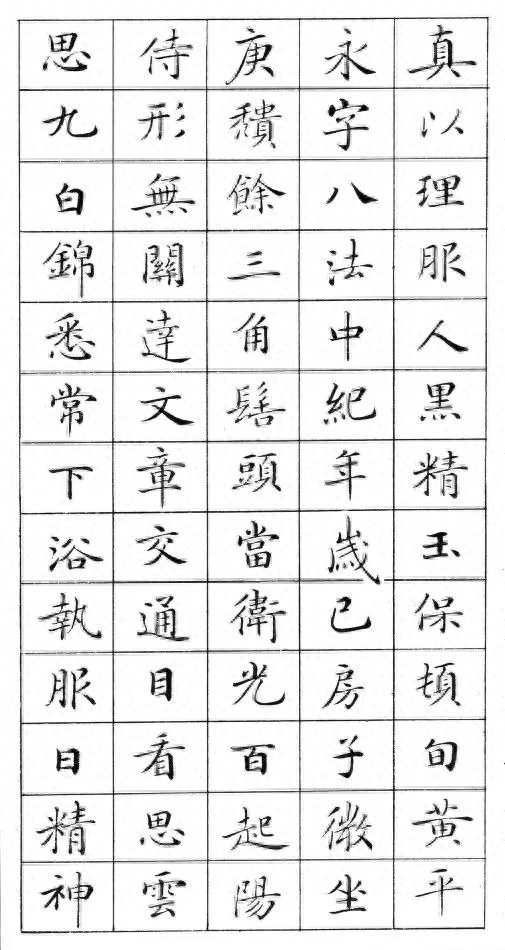 真以理服人黑精玉保頓旬黄平
永字八法中紀年歲已房子微坐
庚餘三角髻頭當衛光百起陽
侍形無關達文章交通目看思雲
思九白錦悉常下浴執服日精神